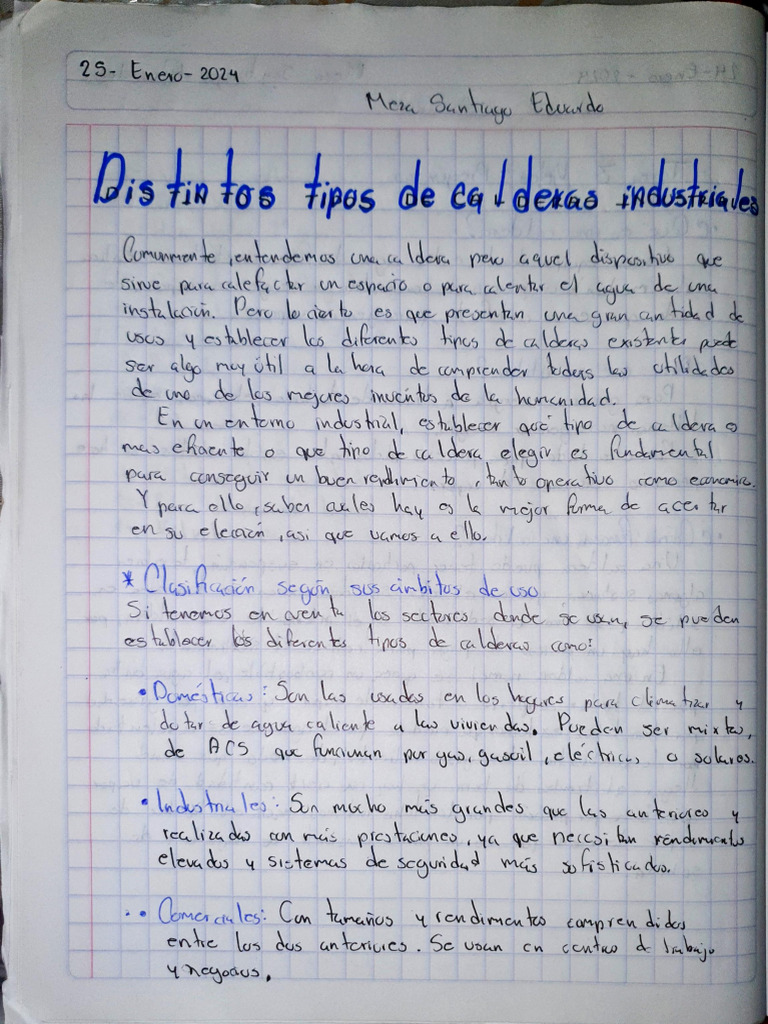 25- Enero- 2024
Meza Santiago Eduardo
Distintos tipos de calderas industriales
Comunmente, entendemos una caldera pero aquel dispositivo que
sirve para calefactar un espacio o para calentar el agua de una
instalación. Pero lo cierto es que presentan una gran cantidad de
usos y establecer los diferentes tipos de calderas existentes puede
ser algo muy útil a la hora de comprender todas las utilidades
de uno de los mejores inventos de la humanidad.
En un entorno industrial, establecer qué tipo de caldera es
mas eficiente o que tipo de caldera elegir es fundamental
para conseguir un buen rendimiento, tanto operativo como economico.
Y para ello, saber cuales hay es la mejor forma de acertar
en su elección, asi que vamos a ello.
* Clasificación según sus ámbitos de uso
Si tenemos en cuenta los sectores donde se usan, se pueden
establecer los diferentes tipos de calderas como:
• Domésticas: Son las usadas en los hogares para climatizar y
dotar de agua caliente a las viviendas. Pueden ser mixtas,
de ACS que funcionan por gas, gasoil, eléctricas o solares.
• Industriales: Son mucho más grandes que las anteriores y
realizadas con más prestaciones, ya que necesitan rendimientos
elevados y sistemas de seguridad más sofisticados.
• Comerciales: Con tamaños y rendimientos comprendidos
entre los dos anteriores. Se usan en centros de trabajo
y negocios.